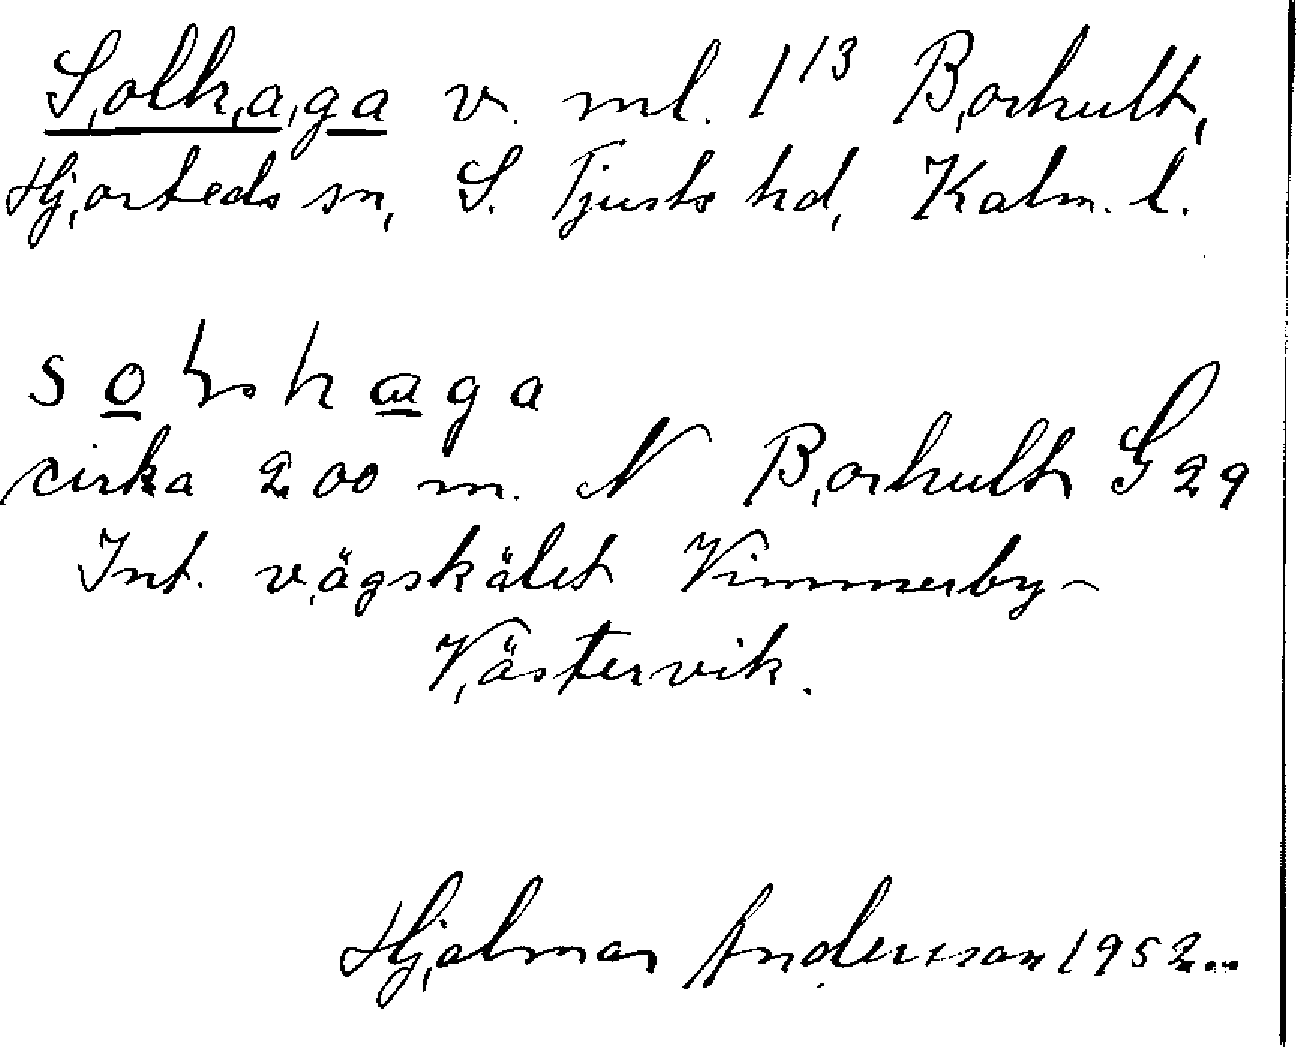 Solhaga v. ml. 1¹³ Borhult,
Hjorteds sn, S. Tjusts hd, Kalm. l.
cirka 200 m. N Borhult G 29
Int. vägskälet Vimmerby-
Västervik.
Hjalmar Andersson 1952..